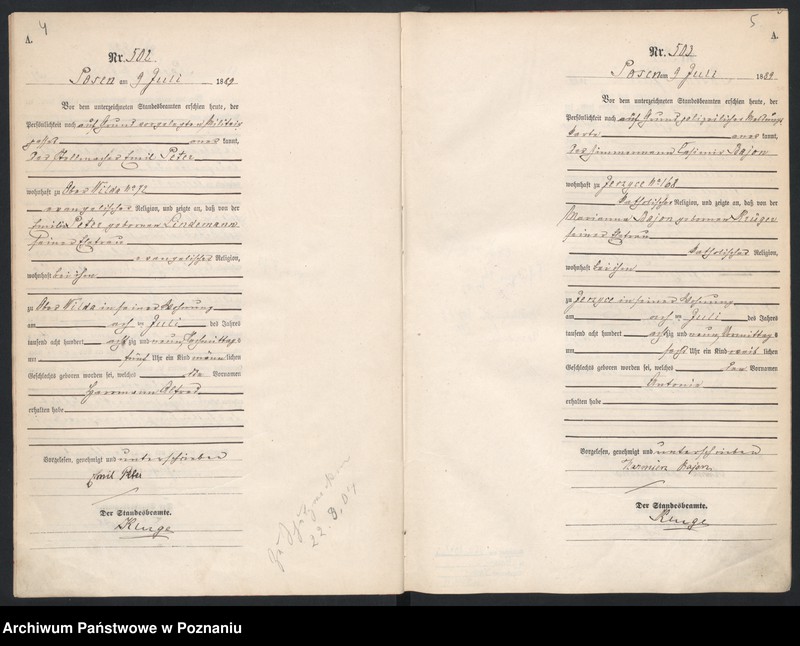 4
A.
Nr. 502
Posen am 9 Juli 1889
Vor dem unterzeichneten Standesbeamten erschien heute, der
Persönlichkeit nach auf Grund vorgelegter Militair
passes anerkannt,
der Stellmacher Emil Peter
wohnhaft zu Ober Wilda No 72
evangelischer Religion, und zeigte an, daß von der
Emilie Peter geborenen Lindemann
seiner Ehefrau
evangelischer Religion,
wohnhaft bei ihm
zu Ober Wilda in seiner Wohnung
am acht ten Juli des Jahres
tausend acht hundert achtzig und neun Nachmittags
um fünf Uhr ein Kind männlichen
Geschlechts geboren worden sei, welches die Vornamen
Herrmann Alfred
erhalten habe
Vorgelesen, genehmigt und unterschrieben
Emil Peter
Der Standesbeamte.
Kluge
22.3.04
5
A.
Nr. 503
Posen am 9 Juli 1889
Vor dem unterzeichneten Standesbeamten erschien heute, der
Persönlichkeit nach auf Grund polizeilicher Meldungs
karte anerkannt,
der Zimmermann Casimir Bajon
wohnhaft zu Jerzyce No 168
katholischer Religion, und zeigte an, daß von der
Marianna Bajon geborenen Krüger
seiner Ehefrau
katholischer Religion,
wohnhaft bei ihm
zu Jerzyce in seiner Wohnung
am acht ten Juli des Jahres
tausend acht hundert achtzig und neun Vormittags
um sechs Uhr ein Kind weiblichen
Geschlechts geboren worden sei, welches den Vornamen
Antonie
erhalten habe
Vorgelesen, genehmigt und unterschrieben
Kazmierz Bajon
Der Standesbeamte.
Kluge
Archiwum Państwowe w Poznaniu